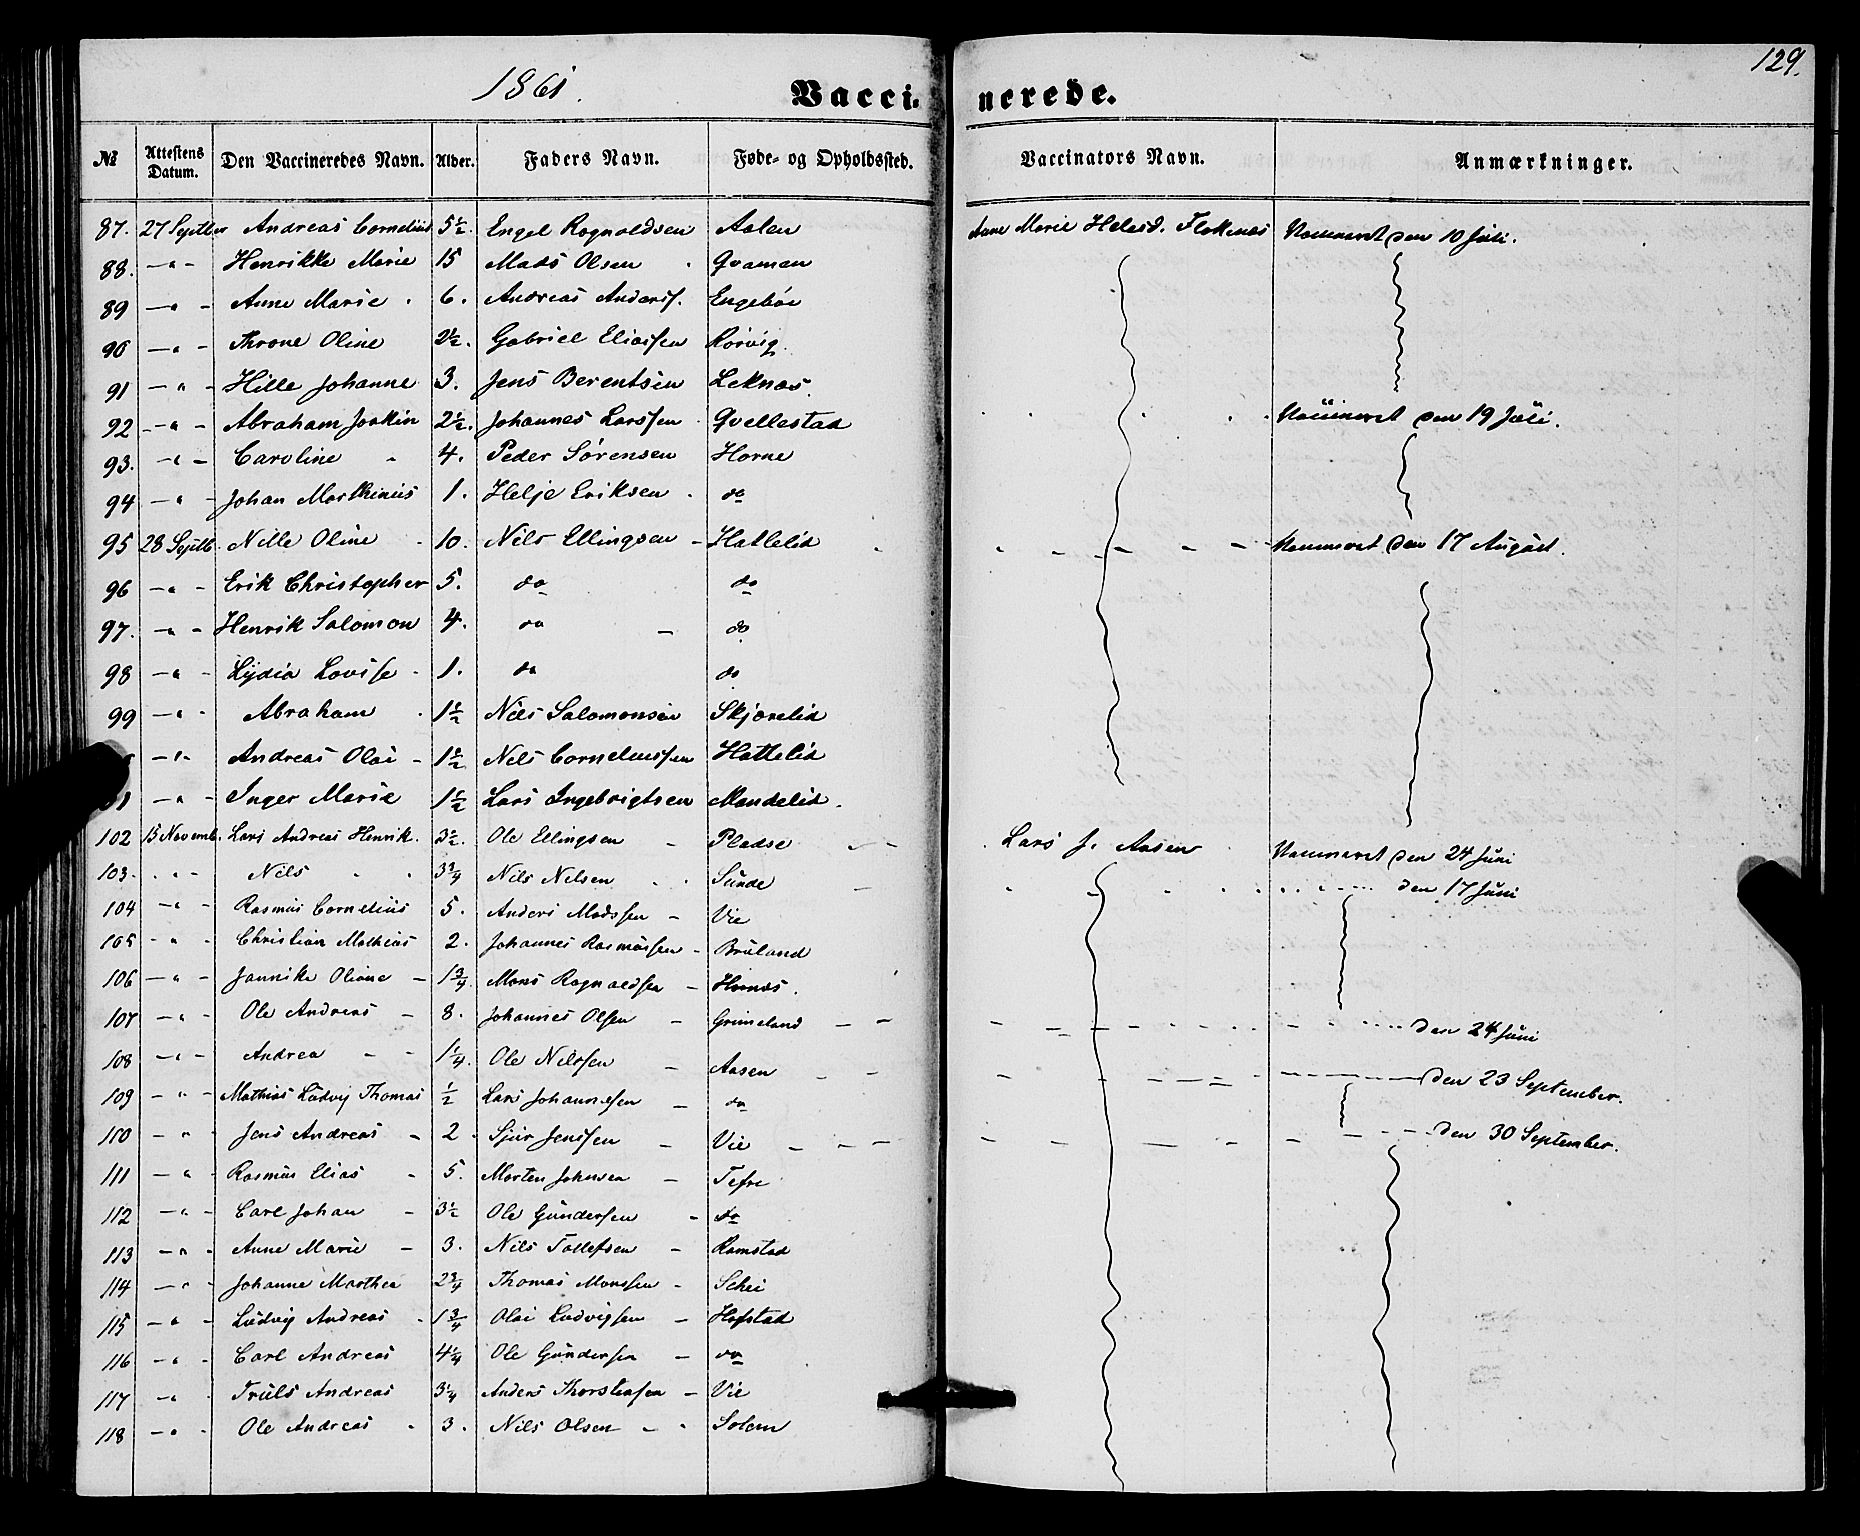 129.
1861.
Vaccinerede.
No Attestens Datum. Den Vaccineredes Navn. Alder. Faders Navn. Føde- og Opholdssted. Vaccinators Navn. Anmærkninger.
87. 27 Septber Andreas Cornelius 5½. Engel Ragnoldsen Aalen Anne Marie Helesd. Flokenæs Vaccineret den 10 Juli.
88. — " — Henrikke Marie 15 Mads Olsen Qvamen
89 — " — Anne Marie 6. Andreas Anderss. Engebøe
90 — " — Throne Oline 2½. Gabriel Eliassen Rørvig.
91 — " — Hille Johanne 3. Jens Berentsen Leknæs.
92 — " — Abraham Joakin 2½. Johannes Larssen Qvellestad Vaccineret den 19 Juli.
93. — " — Caroline 4. Peder Sørensen Horne
94 — " — Johan Marthinus 1. Helje Eriksen do
95 28 Septb. Nille Oline 10. Nils Ellingsen Hatlelid Vaccineret den 17 August.
96 — " — Erik Christopher 5. do do
97. — " — Henrik Salomon 4. do do
98 — " — Lydia Lovisse 1. do do
99 — " — Abraham 1½ Nils Salomonsen Skjørelid
— " — Andreas Olai 1½ Nils Corneliussen Hattelid
01 — " — Inger Marie 1½ Lars Ingebrigtsen Mandelid.
102 15 Novemb. Lars Andreas Henrik. 3½. Ole Ellingsen Pladse Lars J. Aasen Vaccineret den 24 Juni
103. — " — Nils 3¾ Nils Nilsen Sunde den 17 Juni
104 — " — Rasmus Cornelius 5. Anders Madssen Vie
105 — " — Christian Mathias 2. Johannes Rasmussen Bruland
106 — " — Jannike Oline 1¾. Mons Ragnoldsen Hornæs.
107 — " — Ole Andreas 8. Johannes Olsen Grimeland den 24 Juni
108 — " — Andrea 1¼. Ole Nilssen Aasen den 23 September.
109 — " — Mathias Ludvig Thomas ½ Lars Johannessen do
110 — " — Jens Andreas 2 Sjur Jenssen Vie den 30 September.
111 — " — Rasmus Elias 5. Morten Johnsen Tefre
112 — " — Carl Johan 3½ Ole Gundersen do
113 — " — Anne Marie 3. Nils Tollefsen Ramstad
114 — " — Johanne Marthea 2¾ Thomas Monssen Schei
115 — " — Ludvig Andreas 1¾ Olai Ludvigsen Hafstad
116 — " — Carl Andreas 4¼ Ole Gundersen do
117 — " — Truls Andreas 3¼ Anders Thorstensen Vie
118 — " — Ole Andreas 3. Nils Olsen Solem